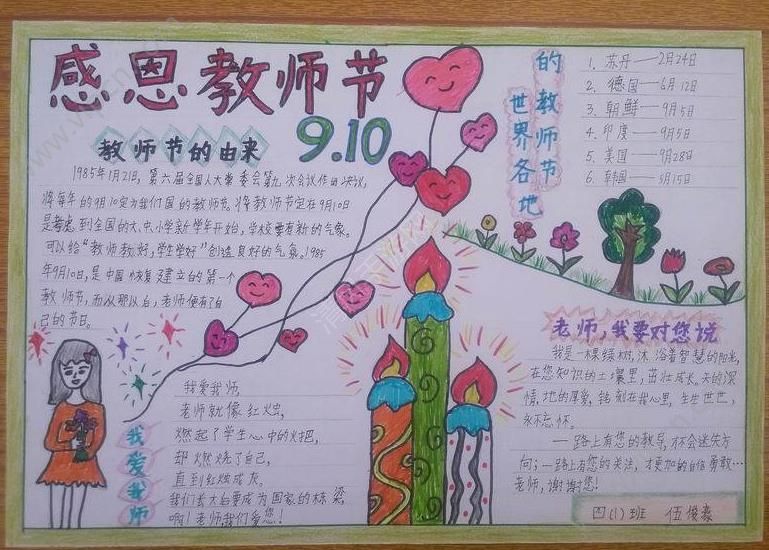 感恩教师节
9.10
教师节的由来
1985年1月21日,第六届全国人大常委会第九次会议作出决议,
将每年的9月10定为我们国的教师节。将教师节定在9月10日
是考虑到全国的大、中、小学新学年开始,学校要有新的气象。
可以给“教师教好,学生学好”创造良好的气氛。1985
年9月10日,是中国恢复建立的第一个
教师节,而从那以后,老师便有了自
己的节日。
世界各地
的教师节
1. 苏丹——2月24日
2. 德国——6月12日
3. 朝鲜——9月5日
4. 印度——9月5日
5. 美国——9月28日
6. 韩国——5月15日
我爱我师
我爱我师,
老师就像红烛,
燃起了学生心中的火把,
却燃烧了自己,
直到红烛成灰。
我们长大后要成为国家的栋梁,
啊!老师我们爱您!
老师,我要对您说
我是一棵绿树,沐浴着智慧的阳光,
在您知识的土壤里,茁壮成长。天的深
情,地的厚爱,铭刻在我心里,生生世世,
永不忘怀。
一路上有您的教导,才不会迷失方
向;一路上有您的关注,才更加的自信勇敢…
老师,谢谢您!
四(1)班 伍俊豪